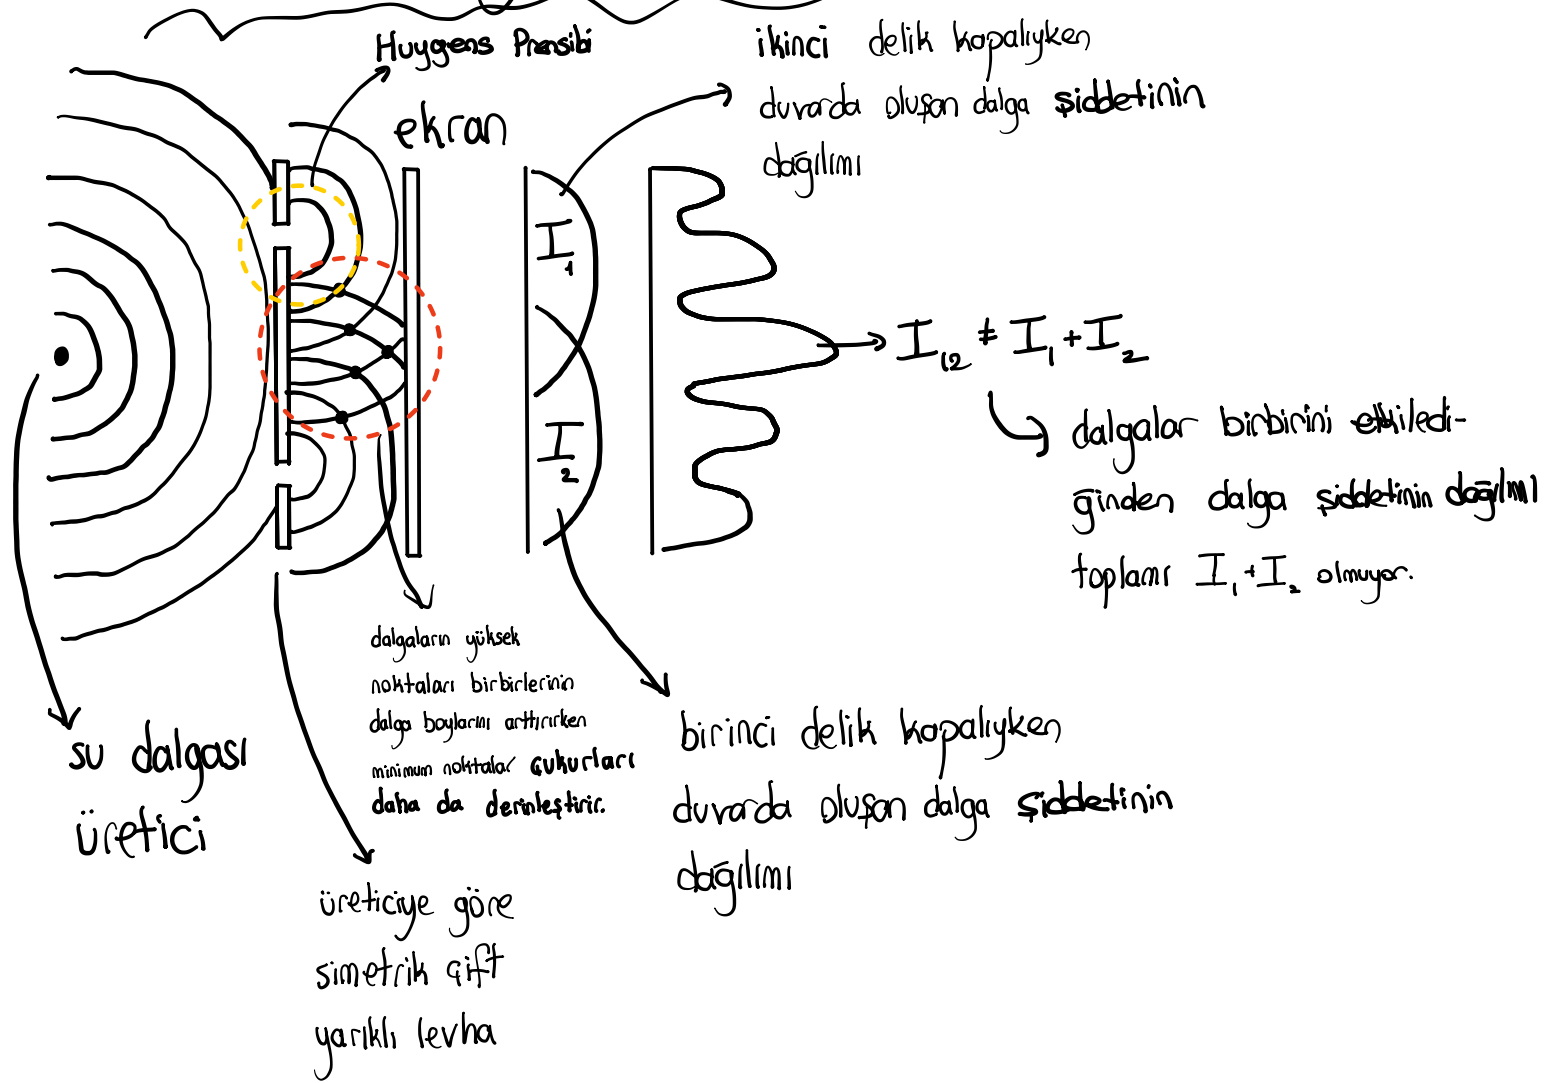 Huygens Prensibi
ekran
ikinci delik kapalıyken
duvarda oluşan dalga şiddetinin
dağılımı
I₁
I₂
I₁₂ ≠ I₁ + I₂
dalgalar birbirini etkiledi-
ğinden dalga şiddetinin dağılımı
toplamı I₁ + I₂ olmuyor.
dalgaların yüksek
noktaları birbirlerinin
dalga boylarını arttırırken
minimum noktalar çukurları
daha da derinleştirir.
su dalgası
üretici
birinci delik kapalıyken
duvarda oluşan dalga şiddetinin
dağılımı
üreticiye göre
simetrik çift
yarıklı levha